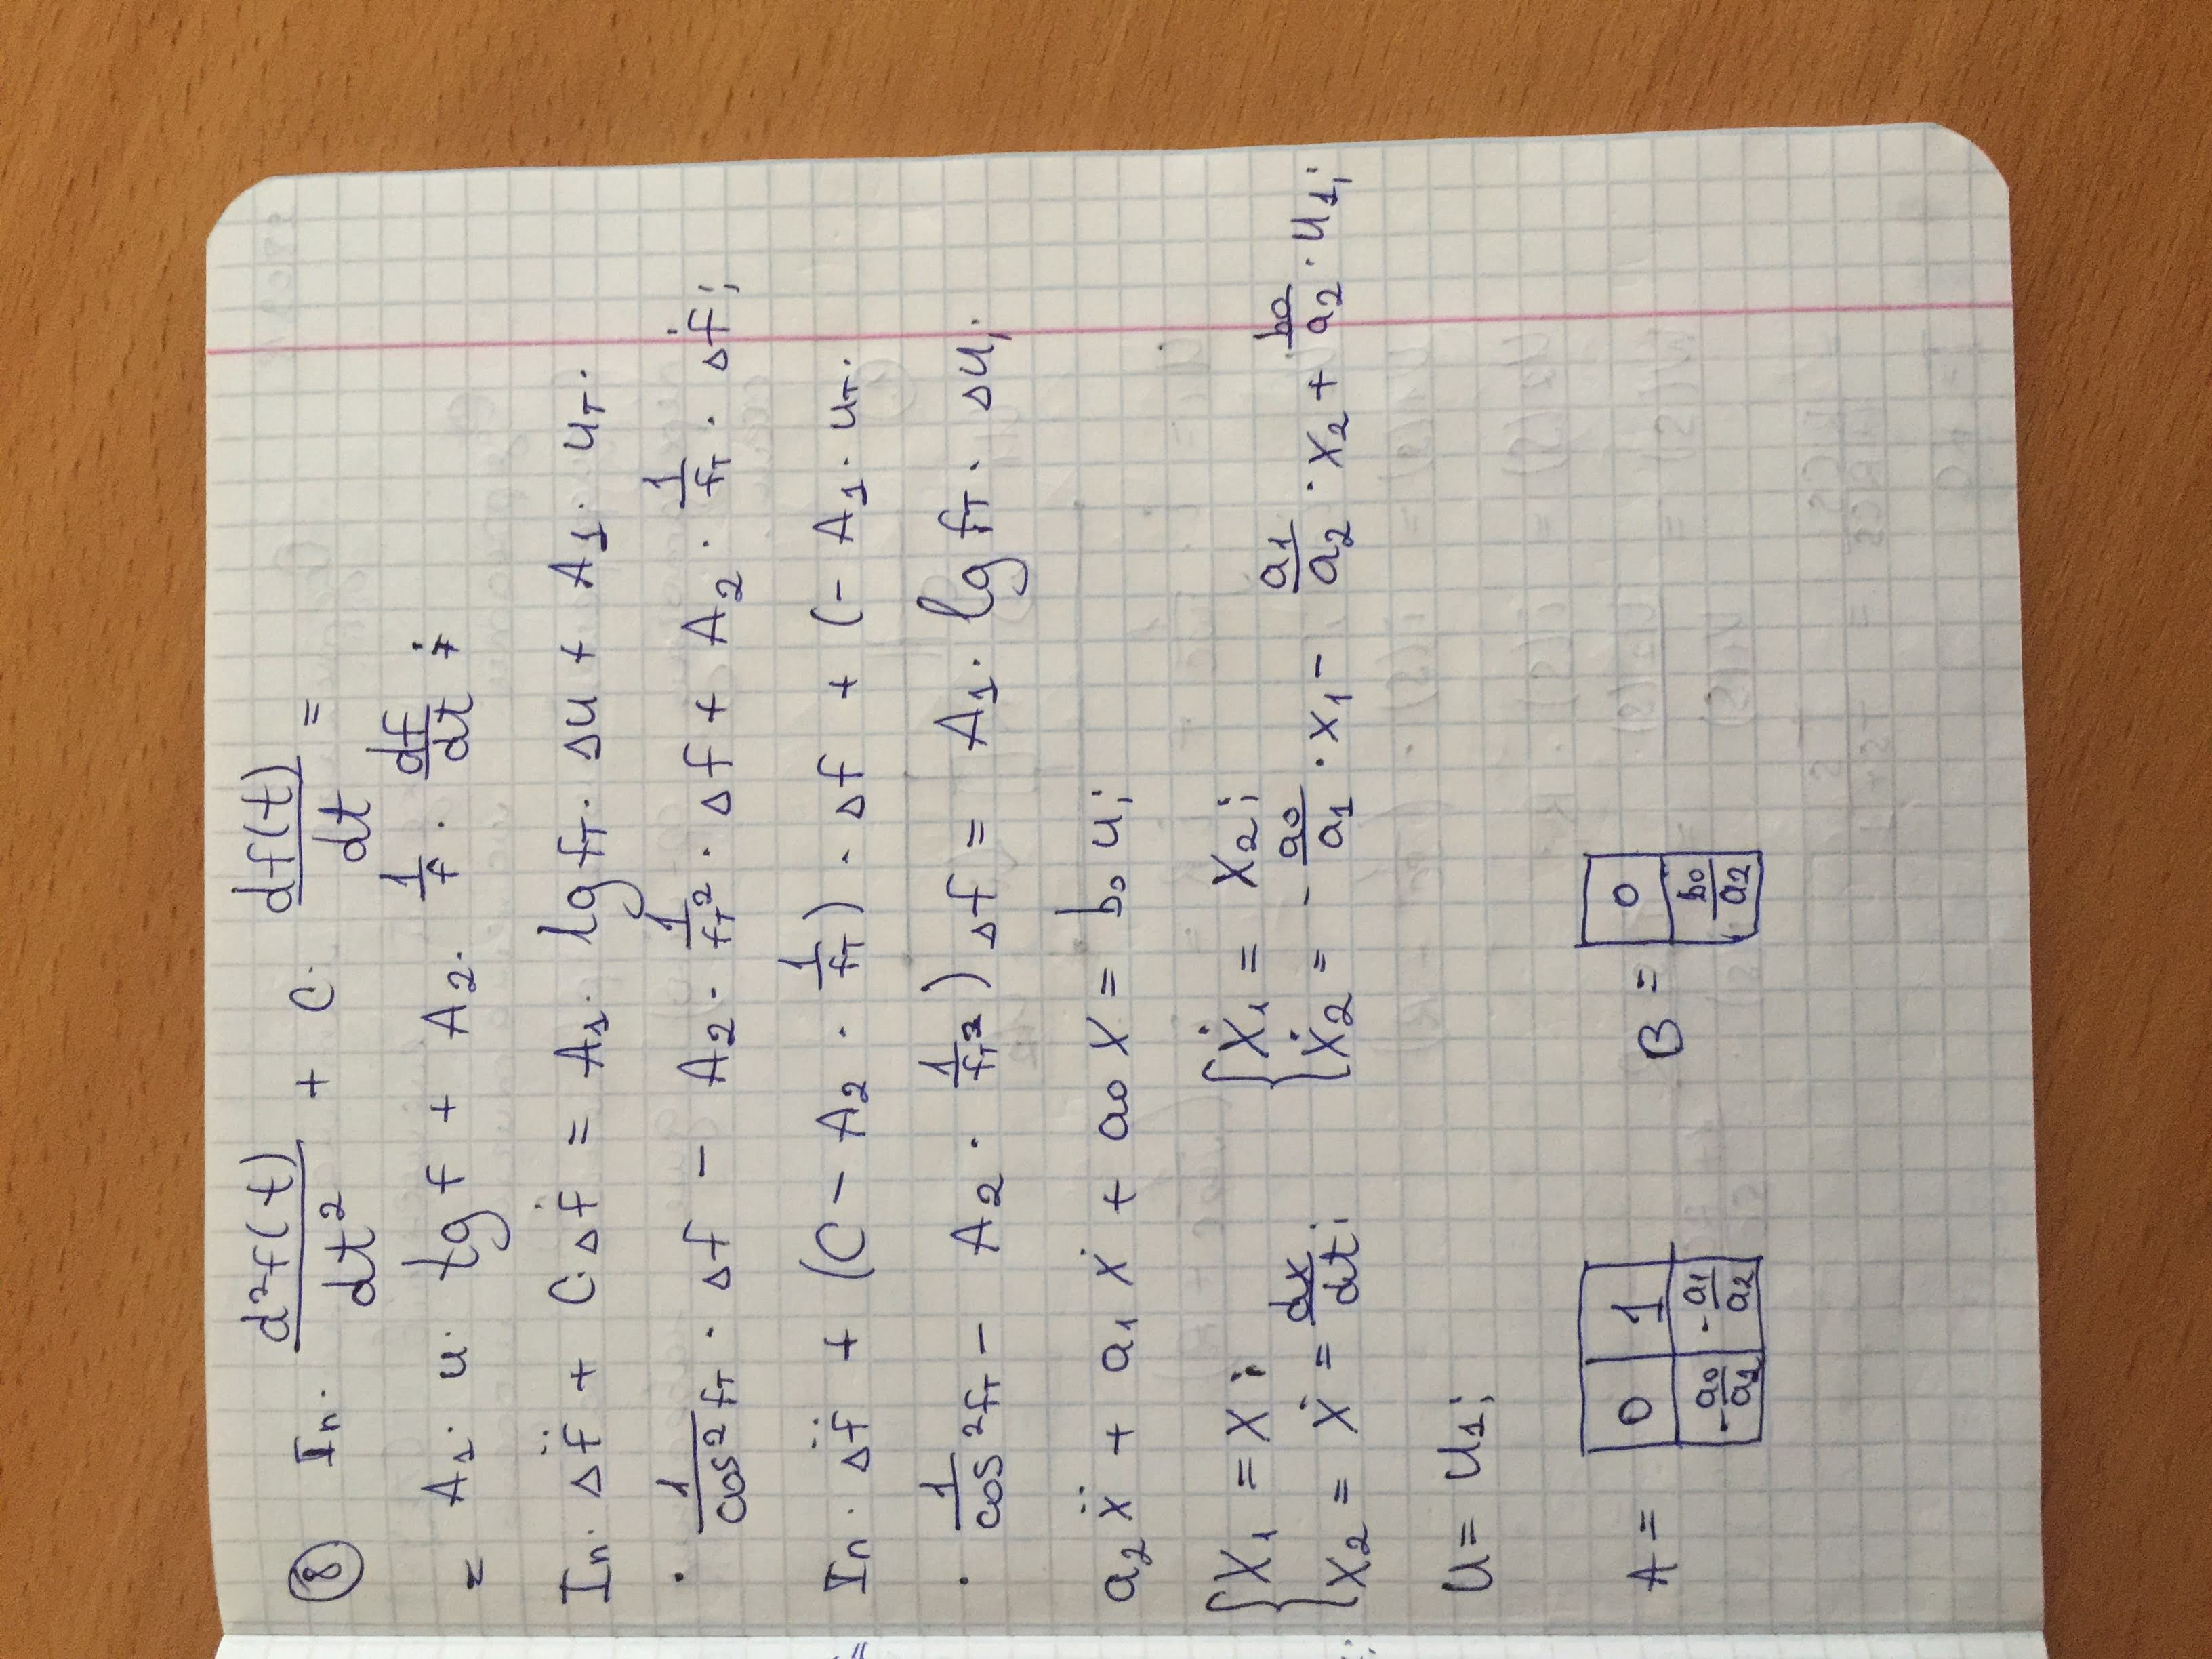 ⑧ In · d²f(t)/dt² + C · df(t)/dt =
= A₁ · u · tg f + A₂ · 1/f · df/dt ;
In · Δf̈ + C · Δḟ = A₁ · lg fт · Δu + A₁ · uт ·
· 1/cos² fт · Δf − A₂ · 1/fт² · Δf + A₂ · 1/fт · Δḟ ;
In · Δf̈ + (C − A₂ · 1/fт) · Δf + (− A₁ · uт ·
· 1/cos² fт − A₂ · 1/fт²) Δf = A₁ · lg fт · Δu ;
a₂ẍ + a₁ẋ + a₀x = b₀u ;
{ x₁ = x ; { ẋ₁ = x₂ ;
x₂ = ẋ = dx/dt ; ẋ₂ = − a₀/a₁ · x₁ − a₁/a₂ · x₂ + b₀/a₂ · u₁ ;
u = u₁ ;
A = | 0 | 1 | B = | 0 |
| −a₀/a₁ | −a₁/a₂ | | b₀/a₂ |